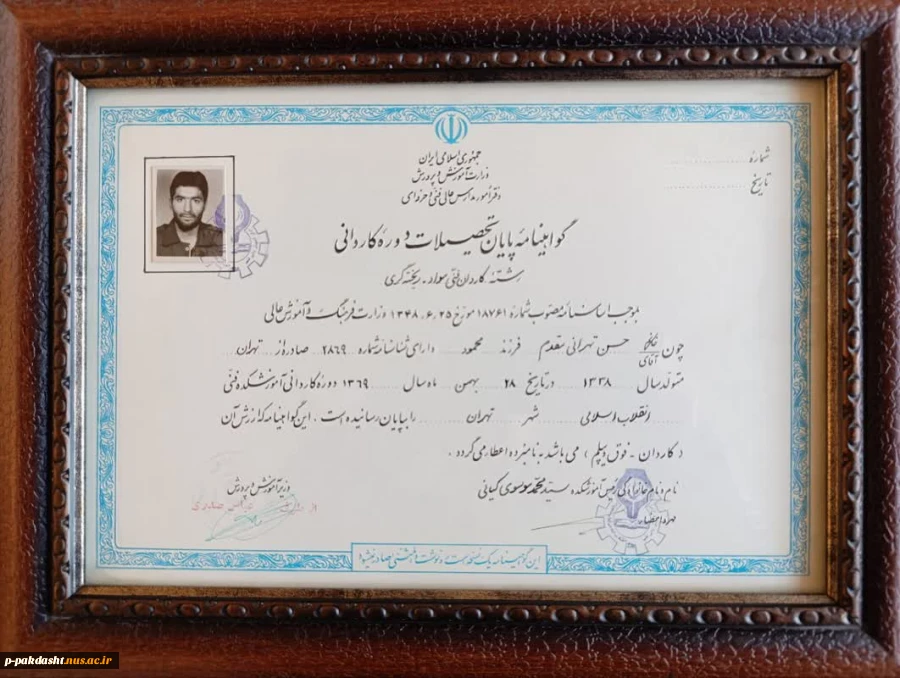 جمهوری اسلامی ایران
وزارت آموزش و پرورش
دفتر امور مدارس عالی فنی و حرفه‌ای
شماره
تاریخ
گواهینامه پایان تحصیلات دوره کاردانی
رشته: کاردان فنی مواد - ریخته گری
بموجب اساسنامه مصوب شماره ۱۸۷۶۱ مورخ ۱۳۴۸،۶،۲۵ وزارت فرهنگ و آموزش عالی
چون خانم آقای حسن تهرانی مقدم فرزند محمود دارای شناسنامه شماره ۲۸۶۹ صادره از تهران
متولد سال ۱۳۳۸ در تاریخ ۲۸ بهمن ماه سال ۱۳۶۹ دوره کاردانی آموزشکده فنی
انقلاب اسلامی شهر تهران را بپایان رسانیده است . این گواهینامه که ارزش آن
( کاردان - فوق دیپلم ) می باشد به نامبرده اعطا می گردد .
نام و نام خانوادگی رئیس آموزشکده سید محمد موسوی کیانی
مهر و امضاء
وزیر آموزش و پرورش
از طرف صدری
این گواهینامه یک نسخه است و نوشت المثنی صادر نمیشود
p-pakdasht.nus.ac.ir